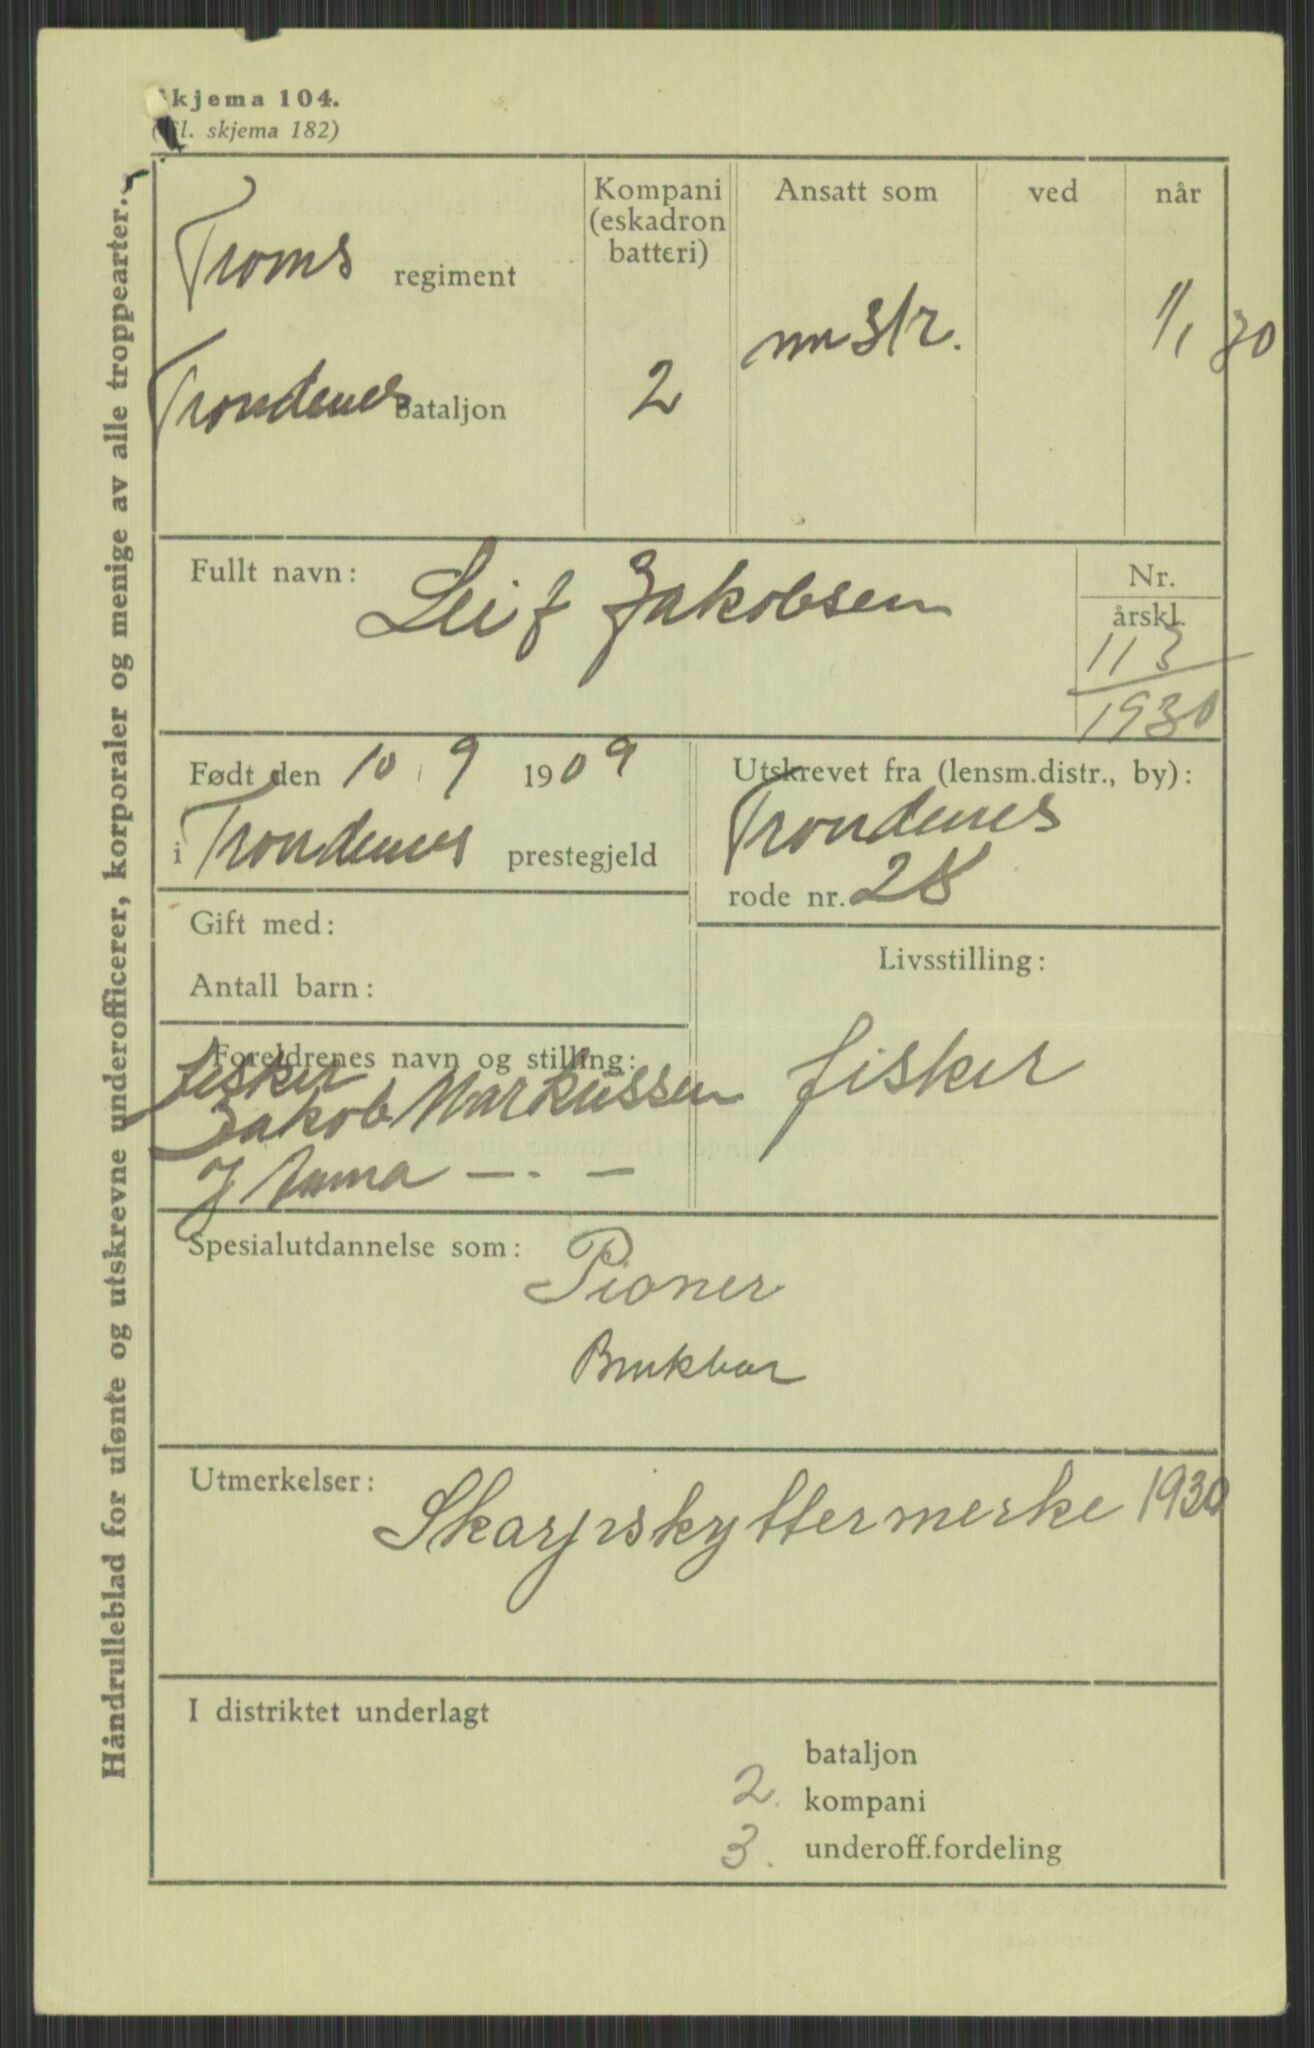 kjema 104.
l. skjema 182)
Håndrulleblad for ulønte og utskrevne underofficerer, korporaler og menige av alle troppearter.
Troms regiment
Kompani
(eskadron
batteri)
Ansatt som
ved
når
1/1 30
Trondenes bataljon
2
Fullt navn: Leif Jakobsen
Nr.
årskl.
113
1930
Født den 10 9 1909
i Trondenes prestegjeld
Utskrevet fra (lensm.distr., by):
Trondenes
rode nr. 28
Gift med:
Antall barn:
Livsstilling:
fisker
Foreldrenes navn og stilling:
fisker
Jakob Markussen
Anna — . —
Spesialutdannelse som: Pioner
Brukbar
Utmerkelser: Skarpskyttermerke 1930
I distriktet underlagt
bataljon
2. kompani
3. underoff.fordeling